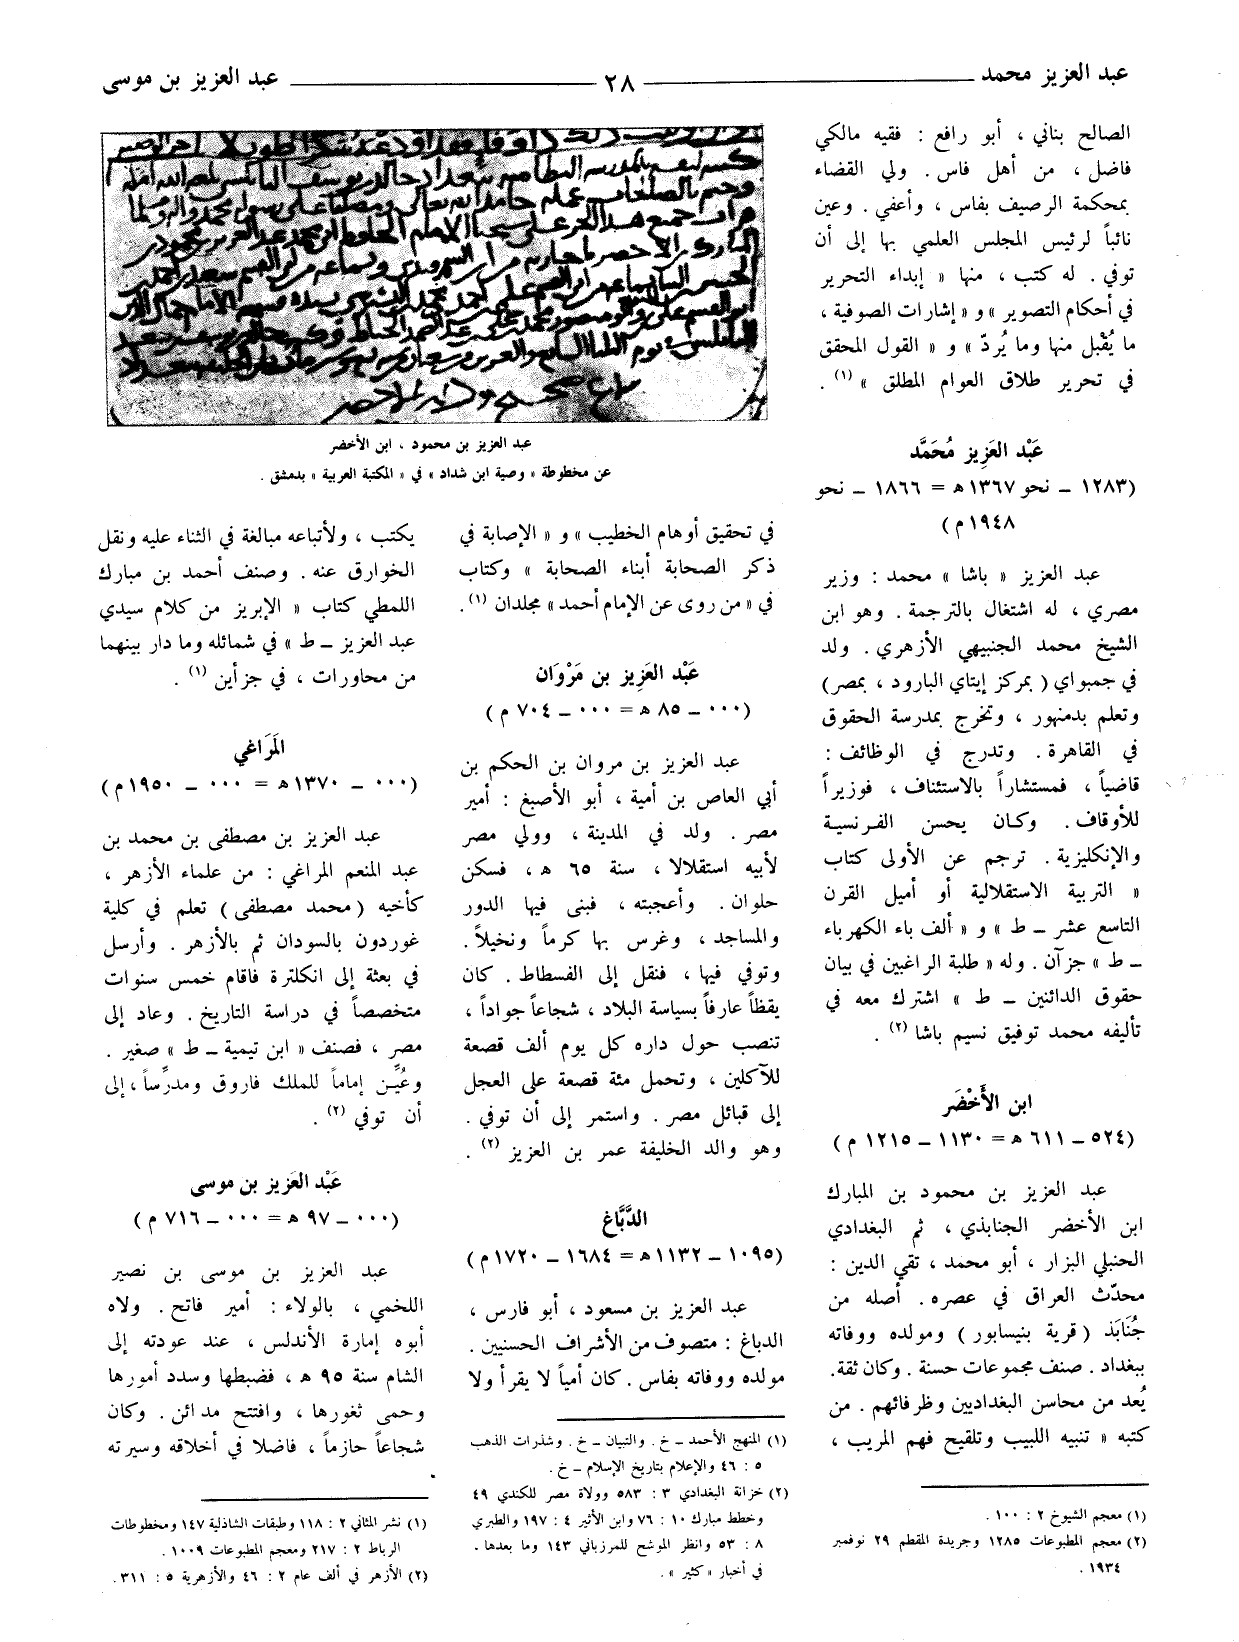 عبد العزيز محمد
٢٨
عبد العزيز بن موسى
الصالح بناني ، أبو رافع : فقيه مالكي
فاضل ، من أهل فاس . ولي القضاء
بمحكمة الرصيف بفاس ، وأعفي . وعين
نائباً لرئيس المجلس العلمي بها إلى أن
توفي . له كتب ، منها « إبداء التحرير
في أحكام التصوير » و « إشارات الصوفية ،
ما يُقْبل منها وما يُردّ » و « القول المحقق
في تحرير طلاق العوام المطلق » (١) .
عَبْد العَزِيز مُحَمَّد
(١٢٨٣ ــ نحو ١٣٦٧ ه = ١٨٦٦ ــ نحو
١٩٤٨ م)
عبد العزيز « باشا » محمد : وزير
مصري ، له اشتغال بالترجمة . وهو ابن
الشيخ محمد الجنبيهي الأزهري . ولد
في جمبواي ( بمركز إيتاي البارود ، بمصر)
وتعلم بدمنهور ، وتخرج بمدرسة الحقوق
في القاهرة . وتدرج في الوظائف :
قاضياً ، فمستشاراً بالاستئناف ، فوزيراً
للأوقاف . وكان يحسن الفرنسية
والإنكليزية . ترجم عن الأولى كتاب
« التربية الاستقلالية أو أميل القرن
التاسع عشر ــ ط » و « ألف باء الكهرباء
ــ ط » جزآن . وله « طلبة الراغبين في بيان
حقوق الدائنين ــ ط » اشترك معه في
تأليفه محمد توفيق نسيم باشا (٢) .
ابن الأَخْضَر
(٥٢٤ ــ ٦١١ ه = ١١٣٠ ــ ١٢١٥ م )
عبد العزيز بن محمود بن المبارك
ابن الأخضر الجنابذي ، ثم البغدادي
الحنبلي البزار ، أبو محمد ، تقي الدين :
محدّث العراق في عصره . أصله من
جُنَابَذ ( قرية بنيسابور ) ومولده ووفاته
ببغداد . صنف مجموعات حسنة . وكان ثقة .
يُعد من محاسن البغداديين وظرفائهم . من
كتبه « تنبيه اللبيب وتلقيح فهم المريب ،
(١) معجم الشيوخ ٢ : ١٠٠ .
(٢) معجم المطبوعات ١٢٨٥ وجريدة المقطم ٢٩ نوفمبر
١٩٣٤ .
عبد العزيز بن محمود ، ابن الأخضر
عن مخطوطة « وصية ابن شداد » في « المكتبة العربية » بدمشق .
في تحقيق أوهام الخطيب » و « الإصابة في
ذكر الصحابة أبناء الصحابة » وكتاب
في « من روى عن الإمام أحمد » مجلدان (١) .
عَبْد العَزِيز بن مَرْوَان
(٠٠٠ ــ ٨٥ ه = ٠٠٠ ــ ٧٠٤ م )
عبد العزيز بن مروان بن الحكم بن
أبي العاص بن أمية ، أبو الأصبغ : أمير
مصر . ولد في المدينة ، وولي مصر
لأبيه استقلالا ، سنة ٦٥ ه ، فسكن
حلوان . وأعجبته ، فبنى فيها الدور
والمساجد ، وغرس بها كرماً ونخيلاً .
وتوفي فيها ، فنقل إلى الفسطاط . كان
يقظاً عارفاً بسياسة البلاد ، شجاعاً جواداً ،
تنصب حول داره كل يوم ألف قصعة
للآكلين ، وتحمل مئة قصعة على العجل
إلى قبائل مصر . واستمر إلى أن توفي .
وهو والد الخليفة عمر بن العزيز (٢) .
الدَّبَّاغ
(١٠٩٥ ــ ١١٣٢ ه = ١٦٨٤ ــ ١٧٢٠ م)
عبد العزيز بن مسعود ، أبو فارس ،
الدباغ : متصوف من الأشراف الحسنيين .
مولده ووفاته بفاس . كان أمياً لا يقرأ ولا
(١) المنهج الأحمد ــ خ . والتبيان ــ خ . وشذرات الذهب
٥ : ٤٦ والإعلام بتاريخ الإسلام ــ خ .
(٢) خزانة البغدادي ٣ : ٥٨٣ وولاة مصر للكندي ٤٩
وخطط مبارك ١٠ : ٧٦ وابن الأثير ٤ : ١٩٧ والطبري
٨ : ٥٣ وانظر الموشح للمرزباني ١٤٣ وما بعدها .
في أخبار « كثير » .
يكتب ، ولأتباعه مبالغة في الثناء عليه ونقل
الخوارق عنه . وصنف أحمد بن مبارك
اللمطي كتاب « الإبريز من كلام سيدي
عبد العزيز ــ ط » في شمائله وما دار بينهما
من محاورات ، في جزأين (١) .
المَرَاغي
(٠٠٠ ــ ١٣٧٠ ه = ٠٠٠ ــ ١٩٥٠ م)
عبد العزيز بن مصطفى بن محمد بن
عبد المنعم المراغي : من علماء الأزهر ،
كأخيه (محمد مصطفى) تعلم في كلية
غوردون بالسودان ثم بالأزهر . وأرسل
في بعثة إلى انكلترة فاقام خمس سنوات
متخصصاً في دراسة التاريخ . وعاد إلى
مصر ، فصنف « ابن تيمية ــ ط » صغير .
وعُيِّن إماماً للملك فاروق ومدرِّساً ، إلى
أن توفي (٢) .
عَبْد العَزيز بن موسى
(٠٠٠ ــ ٩٧ ه = ٠٠٠ ــ ٧١٦ م )
عبد العزيز بن موسى بن نصير
اللخمي ، بالولاء : أمير فاتح . ولاه
أبوه إمارة الأندلس ، عند عودته إلى
الشام سنة ٩٥ ه ، فضبطها وسدد أمورها
وحمى ثغورها ، وافتتح مدائن . وكان
شجاعاً حازماً ، فاضلا في أخلاقه وسيرته
(١) نشر المثاني ٢ : ١١٨ وطبقات الشاذلية ١٤٧ ومخطوطات
الرباط ٢ : ٢١٧ ومعجم المطبوعات ١٠٠٩ .
(٢) الأزهر في ألف عام ٢ : ٤٦ والأزهرية ٥ : ٣١١ .